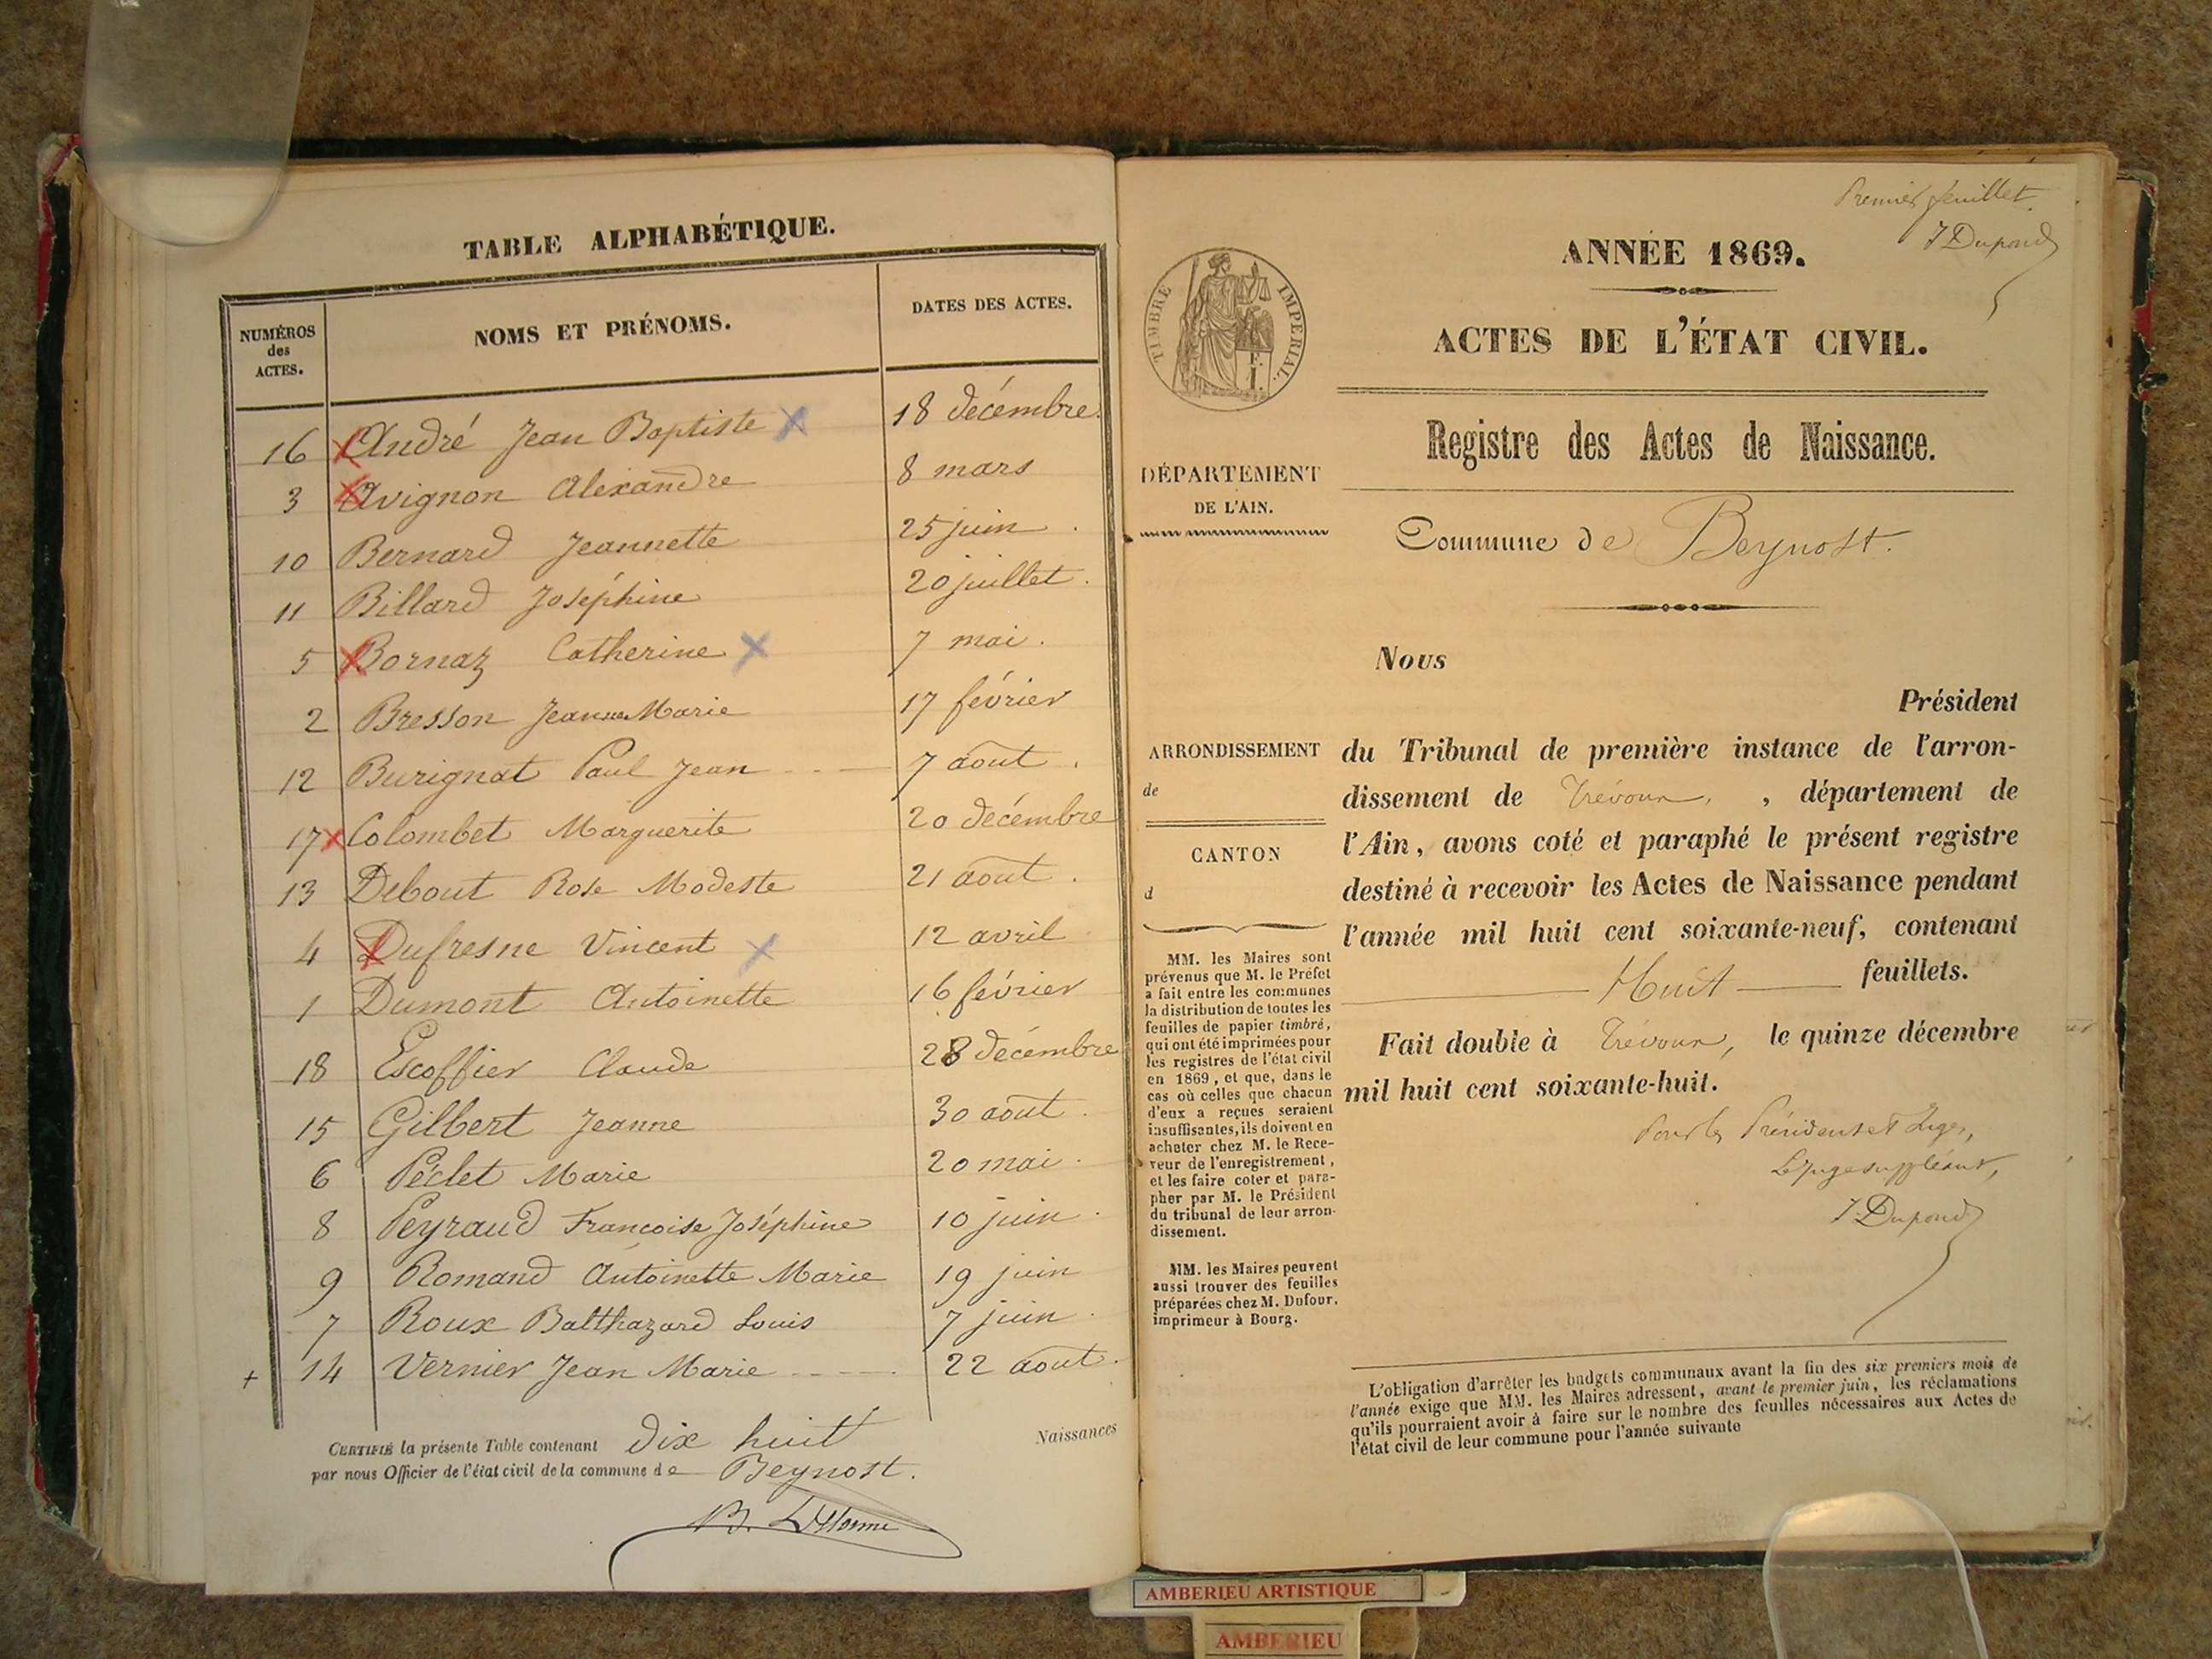 TABLE ALPHABÉTIQUE.
NUMÉROS
des
ACTES.
NOMS ET PRÉNOMS.
DATES DES ACTES.
16 André Jean Baptiste 18 décembre.
3 Avignon Alexandre 8 mars
10 Bernard Jeannette 25 juin.
11 Billard Joséphine 20 juillet.
5 Bornaz Catherine 7 mai.
2 Bresson Jeanne Marie 17 février
12 Burignat Paul Jean 7 août.
17 Colombet Marguerite 20 décembre
13 Debout Rose Modeste 21 août.
4 Dufresne Vincent 12 avril
1 Dumont Antoinette 16 février
18 Escoffier Claude 28 décembre
15 Gilbert Jeanne 30 août.
6 Péclet Marie 20 mai.
8 Peyraud Françoise Joséphine 10 juin.
9 Romand Antoinette Marie 19 juin
7 Roux Balthazard Louis 7 juin.
+ 14 Vernier Jean Marie 22 août.
CERTIFIÉ la présente Table contenant dix huit Naissances
par nous Officier de l'état civil de la commune de Beynost.
Premier feuillet.
J Dupond
ANNÉE 1869.
TIMBRE IMPERIAL.
E.
I.
ACTES DE L'ÉTAT CIVIL.
Registre des Actes de Naissance.
DÉPARTEMENT
DE L'AIN.
Commune de Beynost.
Nous
Président
ARRONDISSEMENT
de
CANTON
d
du Tribunal de première instance de l'arron-
dissement de Trévoux, , département de
l'Ain, avons coté et paraphé le présent registre
destiné à recevoir les Actes de Naissance pendant
l'année mil huit cent soixante-neuf, contenant
Huit feuillets.
Fait double à Trévoux, le quinze décembre
mil huit cent soixante-huit.
Pour les Président et Juges,
Le Juge suppléant,
J. Dupond
MM. les Maires sont
prévenus que M. le Préfet
a fait entre les communes
la distribution de toutes les
feuilles de papier timbré,
qui ont été imprimées pour
les registres de l'état civil
en 1869, et que, dans le
cas où celles que chacun
d'eux a reçues seraient
insuffisantes, ils doivent en
acheter chez M. le Rece-
veur de l'enregistrement,
et les faire coter et para-
pher par M. le Président
du tribunal de leur arron-
dissement.
MM. les Maires peuvent
aussi trouver des feuilles
préparées chez M. Dufour,
imprimeur à Bourg.
L'obligation d'arrêter les budgets communaux avant la fin des six premiers mois de
l'année exige que MM. les Maires adressent, avant le premier juin, les réclamations
qu'ils pourraient avoir à faire sur le nombre des feuilles nécessaires aux Actes de
l'état civil de leur commune pour l'année suivante
AMBERIEU ARTISTIQUE
AMBERIEU